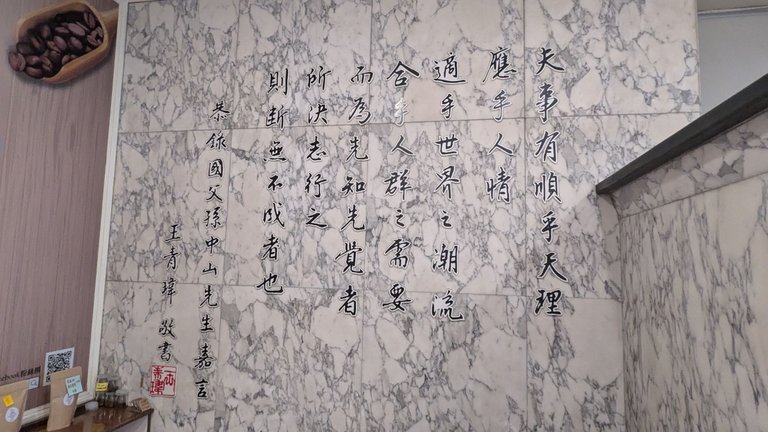 夫事有順乎天理
應乎人情
適乎世界之潮流
合乎人群之需要
而為先知先覺者
所決志行之
則断無不成者也
恭錄國父孫中山先生嘉言
王青瑋敬書